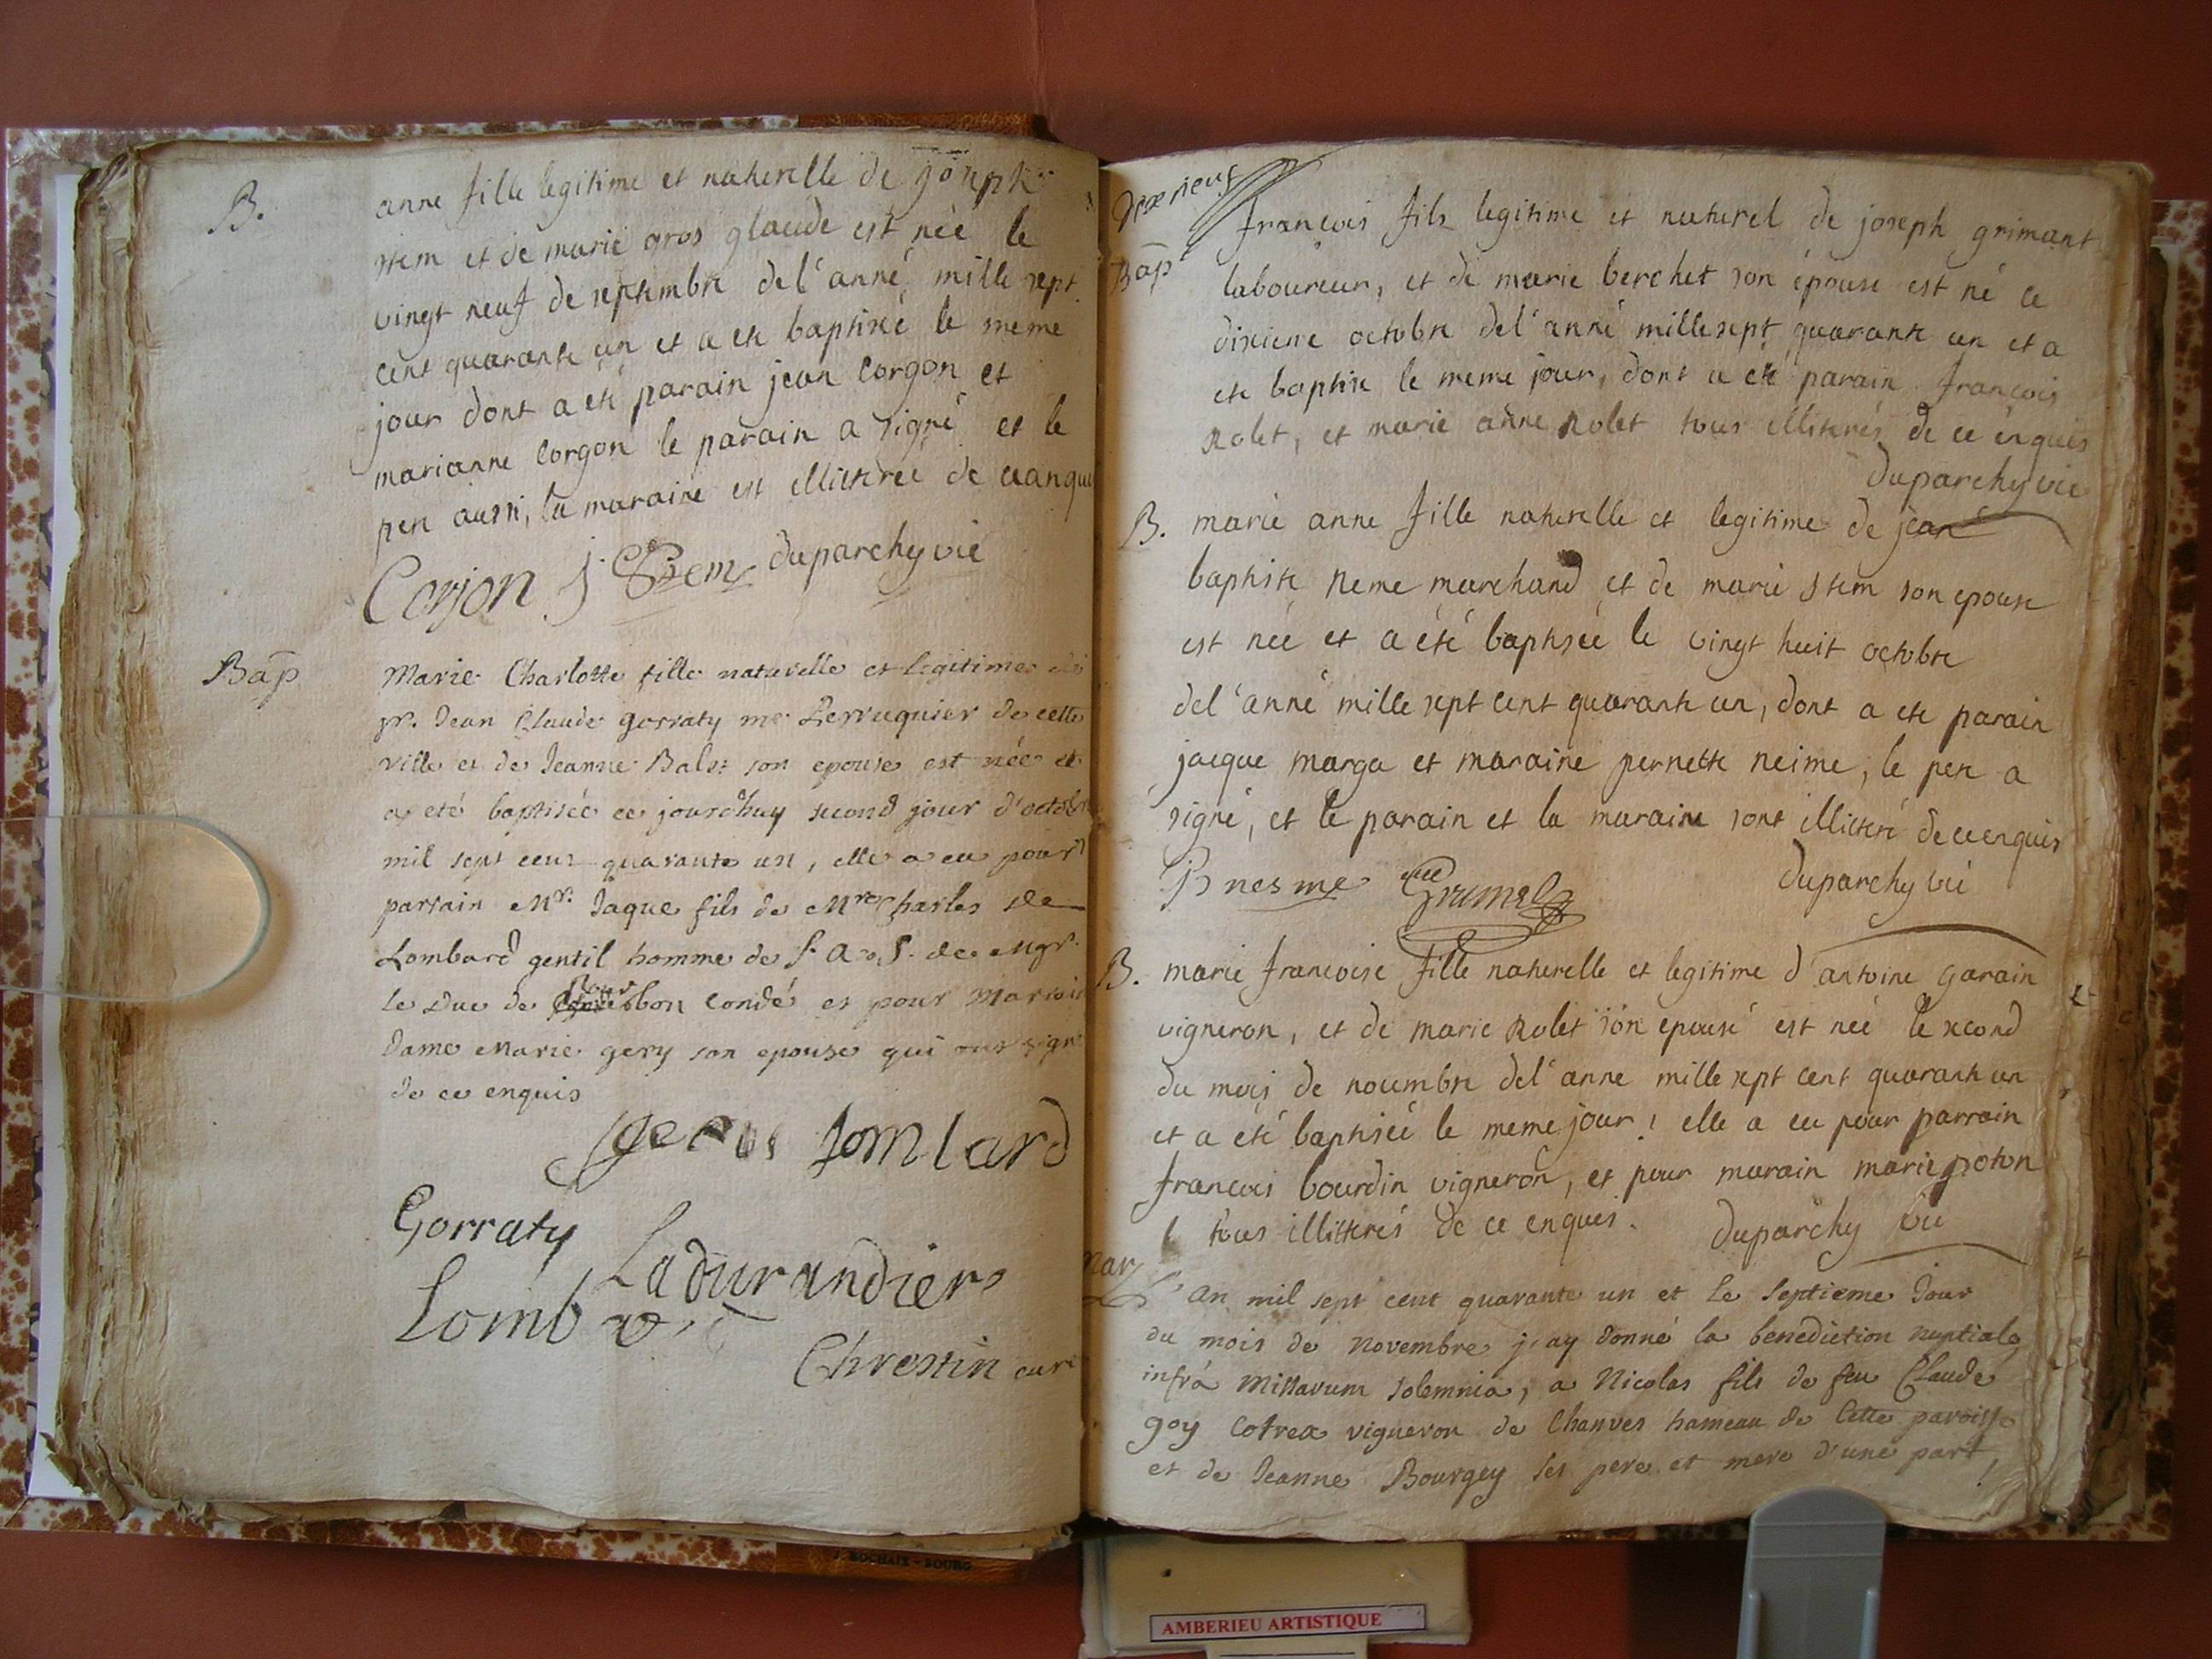 B.
anne fille legitime et naturelle de joseph
stem et de marie gros glaude est née le
vingt neuf de septembre del'anné mille sept
cent quarante un et a ete baptisée le meme
jour dont a eté parain jean corgon et
marianne Corgon le parain a signé et le
pere aussi, la maraine est illiterée de ce anquis
Corjon J Stem duparchy vic
Bap
Marie Charlotte fille naturelle et legitime de
sr. Jean Claude gorraty me Perruquier de cette
ville et de Jeanne Balet son epouse est née et
a eté baptisée ce jourdhuy second jour d'octobre
mil sept cent quarante un, elle a eu pour
parrain Mr. Jaque fils de Mre Charles de
Lombard gentil homme de S. A. S. de Mgr.
le Duc de Bourbon Condé et pour Marraine
dame Marie gery son epouse qui ont signé
de ce enquis
Lombard
Gorraty
Ladurandiere
Lomb
Chrestin curé
Bap
françois fils legitime et naturel de joseph grimant
laboureur, et de marie berchet son épouse est né ce
dixieme octobre del'anné mille sept quarante un et a
ete baptise le meme jour, dont a eté parain françois
Rolet, et marie anne Rolet tous illiterés de ce enquis
duparchy vic
B. marie anne fille naturelle et legitime de jean
baptiste neme marchand et de marie stem son epouse
est née et a été baptisée le vingt huit octobre
del'anné mille sept cent quarante un, dont a ete parain
jacque marga et maraine pernette neime, le pere a
signé, et le parain et la maraine sont illiteré de ce enquis
nesme duparchy vic
B. marie francoise fille naturelle et legitime d'antoine garain
vigneron, et de marie Rolet son epouse est née le second
du mois de novembre del'anne mille sept cent quarante un
et a été baptisée le meme jour! elle a eu pour parrain
francois bourdin vigneron, et pour marain marie poton
tous illiterés de ce enquis. duparchy vic
Mar
L'an mil sept cent quarante un et le septieme jour
du mois de novembre j'ay donné la benediction nuptiale
infrà missarum solemnia, a Nicolas fils de feu Claude
goy Cotrex vigneron de Chanves hameau de cette paroisse
et de Jeanne Bourgey ses pere et mere d'une part,
J. ROCHAIX - BOURG
AMBERIEU ARTISTIQUE